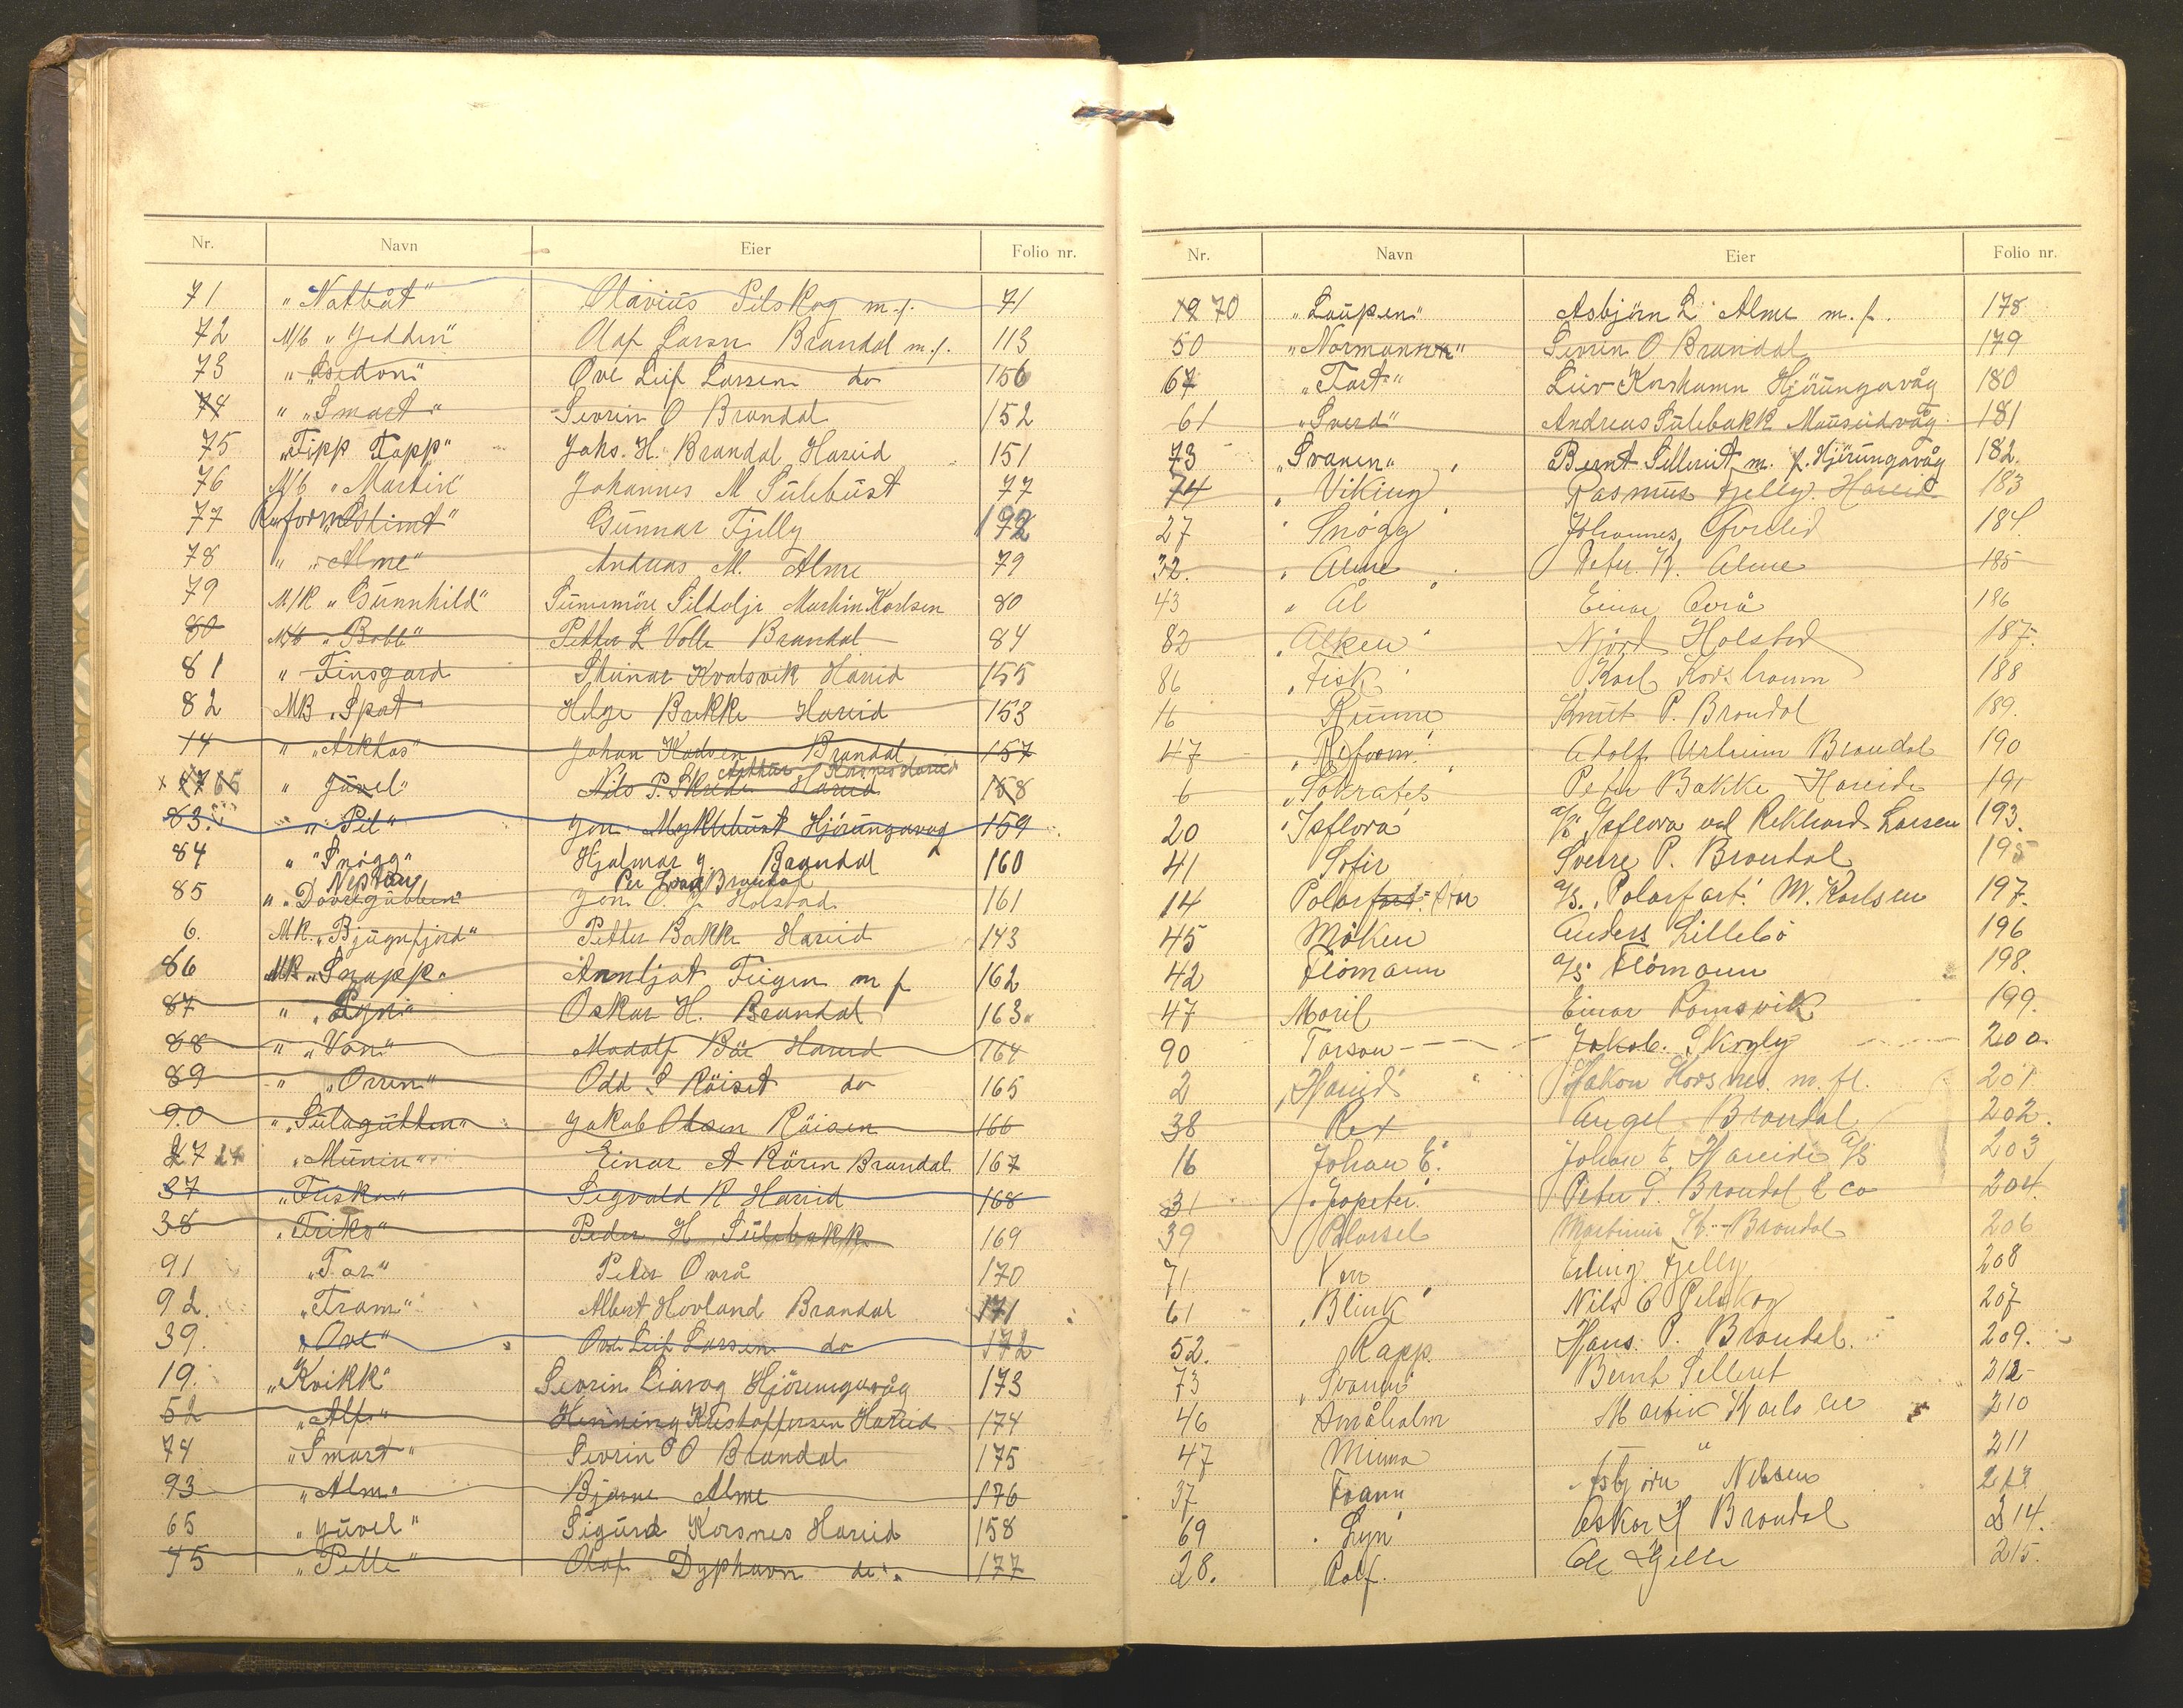 Nr. Navn Eier Folio nr.
71 "Nattbåt" Olavius Pilskog m.f. 71
72 M/b "Jeddin" Olaf Larsen Brandal m.f. 113
73 " "Isidor" Ove Leif Larsen do 156
74 " "Smart" Sevrin O Brandal 152
75 "Tipp Topp" Johs. H. Brandal Hareid 151
76 M/b "Martin" Johannes M Sulebust 77
77 Reform Gunnar Fjelly 192
78 " "Alme" Andreas M. Alme 79
79 M/K "Gunnhild" Sunnmöre Sildolje Martin Karlsen 80
80 M/b "Bobb" Petter L Volle Brandal 84
81 " Finsgard Steinar Kvalsvik Hareid 155
82 MB "Spat" Helge Bakke Hareid 153
14 " "Arktos" Johan Hadsen Brandal 157
x 17 65 " Juvel" Nils P. Skeide Hareid Arthur Korsnes Hareid 158
83. " Pil" Jon Myklebust Hjörungavag 159
84 " "Snögg" Hjalmar J. Brandal 160
Neptun Per Brandal
85 " "Dovregubben" Jon O. J. Holstad 161
6. MK. "Bjugnfjord" Petter Bakke Hareid 143
86 MK "Snapp" Annljot Teigen m f 162
87 " "Lyn" Oskar H. Brandal 163
88 " "Von" Modolf Böe Hareid 164
89 " "Orren" Odd S Röiset do 165
90 " "Sulagutten" Jakob Olsen Röisen 166
27 27 "Munin" Einar A Rören Brandal 167
37 "Friska" Sigvald R Hareid 168
38 "Friko" Peder H Sulebakk 169
91 "Tor" Peter Ovrå 170
92. "Fram" Albert Hovland Brandal 171
39. "Ove" Ove Leif Larsen do 172
19. "Kvikk" Sevrin Liavag Hjörungavåg 173
52 "Alf" Henning Kristoffersen Hareid 174
74 "Smart" Sevrin O Brandal 175
93 "Alm" Bjarne Alme 176
65 "Juvel" Sigurd Korsnes Hareid 158
75 "Pelle" Olaf Dyphavn do. 177
Nr. Navn Eier Folio nr.
19 70 "Laupen" Asbjörn L Alme m.f. 178
50 "Normann" Sevrin O Brandal 179
67 "Fart" Liv Korshamn Hjörungavåg 180
61 "Sverd" Andreas Sulebakk Mauseidvåg 181
73 "Svanen" Bernt Sellereit m. f. Hjörungavåg 182.
74 " Viking Rasmus Fjelly. Hareid 183
27 " Snögg Johannes 184
32. " Alme Peter K. Alme 185
43 " Ål Einar Ovrå 186
82 "Alken" Njörd Holstad 187.
86 "Fisk" Karl Korshamn 188
16 Runne Knut P. Brandal 189.
47 "Reform" Adolf Urheim Brandal 190
6 "Sokrates Peter Bakke Hareide 191
20 "Isflora" a/s Isflora ved Rikhard Larsen 193.
41 Sofir Sverre P. Brandal 195
14 Polarfart: Star a/s. "Polarfart" M. Karlsen 197.
45 Måken Anders Lillebö 196
42 Flömann a/s Flömann 198.
47 Moril Einar Romsvik 199.
90 Tarsan Jakob. Skogly 200.
2 "Hareid" Håkon Korsnes m. fl. 201
38 Rex Angel Brandal 202.
16 Johan E. Johan E. Hareide A/S 203
31 "Jopeter" Peter S. Brandal & Co 204.
39 Polarsel Martinus K. Brandal 206
71 Von Erling Fjelly 208
61 "Blink" Nils O Pilskog 207
52. Rapp Hans P. Brandal. 209.
73 "Svanen" Bernt Selleret 212
46 Småholm Martin Karlsen 210
47 Minna " 211
37 Fram Asbjörn Nilssen 213
69 "Lyn" Oskar H Brandal 214.
28. Rolf. Ole Gjelle 215.